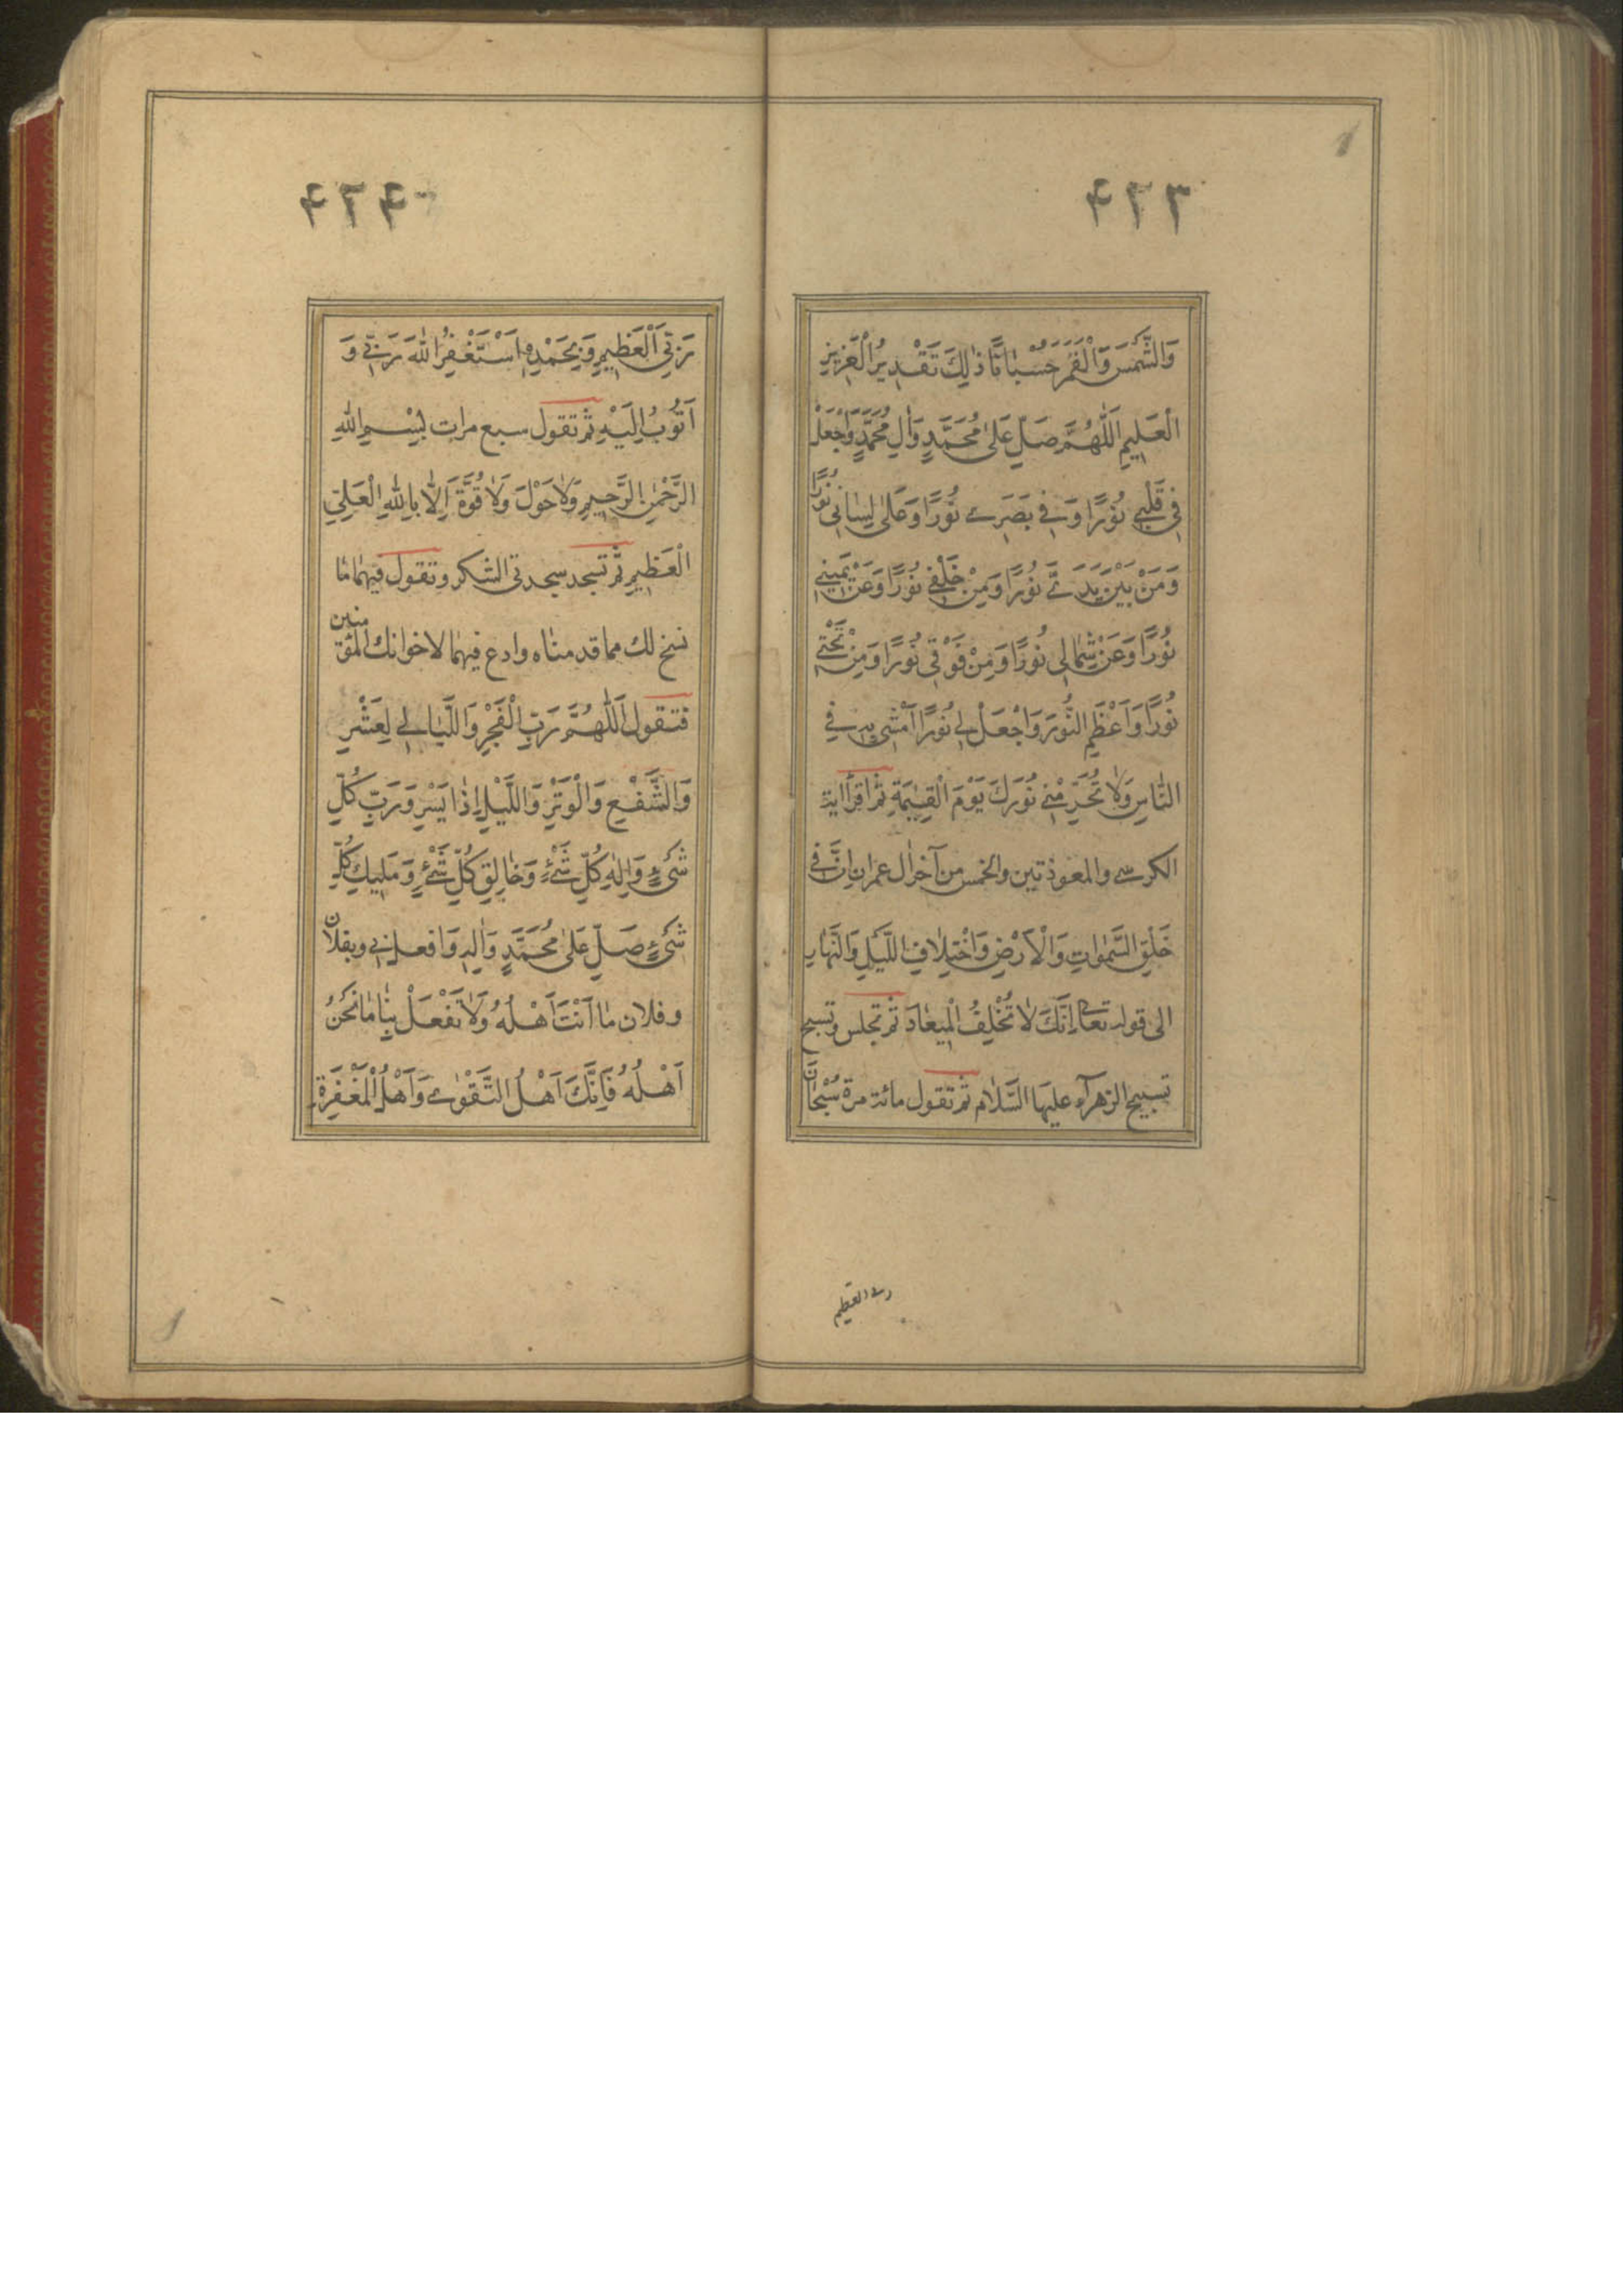 ٤٢٣
وَالشَّمْسَ وَالْقَمَرَ حُسْبَانًا ذٰلِكَ تَقْدِيرُ الْعَزِيزِ
الْعَلِيمِ اَللّٰهُمَّ صَلِّ عَلٰى مُحَمَّدٍ وَاٰلِ مُحَمَّدٍ وَاجْعَلْ
فِي قَلْبِي نُورًا وَفِي بَصَرِي نُورًا وَعَلٰى لِسَانِي نُورًا
وَمِنْ بَيْنِ يَدَيَّ نُورًا وَمِنْ خَلْفِي نُورًا وَعَنْ يَمِينِي
نُورًا وَعَنْ شِمَالِي نُورًا وَمِنْ فَوْقِي نُورًا وَمِنْ تَحْتِي
نُورًا وَاَعْظِمِ النُّورَ وَاجْعَلْ لِي نُورًا اَمْشِي بِهِ فِي
النَّاسِ وَلَا تُحَرِّمْنِي نُورَكَ يَوْمَ الْقِيٰمَةِ ثم اقرأ اية
الكرسي والمعوذتين والخمس من آخر ال عمران اِنَّ فِي
خَلْقِ السَّمٰوَاتِ وَالْاَرْضِ وَاخْتِلَافِ اللَّيْلِ وَالنَّهَارِ
الى قوله تعالى اِنَّكَ لَا تُخْلِفُ الْمِيعَادَ ثم تجلس وتسبح
تسبيح الزهرآء عليها السَّلام ثم تقول مائة مرة سُبْحَانَ
ربي العظيم
٤٢٤
رَبِّيَ الْعَظِيمِ وَبِحَمْدِهِ اَسْتَغْفِرُ اللّٰهَ رَبِّي وَ
اَتُوبُ اِلَيْهِ ثم تقول سبع مرات بِسْمِ اللّٰهِ
الرَّحْمٰنِ الرَّحِيمِ وَلَا حَوْلَ وَلَا قُوَّةَ اِلَّا بِاللّٰهِ الْعَلِيِّ
الْعَظِيمِ ثم تسجد سجدتي الشكر وتقول فيهما ما
نسخ لك مما قدمناه وادع فيهما لاخوانك المؤمنين
فتقول اَللّٰهُمَّ رَبَّ الْفَجْرِ وَاللَّيَالِي لِعَشْرِ
وَالشَّفْعِ وَالْوَتْرِ وَاللَّيْلِ اِذَا يَسْرِ وَرَبَّ كُلِّ
شَيْءٍ وَاِلٰهَ كُلِّ شَيْءٍ وَخَالِقَ كُلِّ شَيْءٍ وَمَلِيكَ كُلِّ
شَيْءٍ صَلِّ عَلٰى مُحَمَّدٍ وَاٰلِهِ وَافعل بي وبفلان
وفلان مَا اَنْتَ اَهْلُهُ وَلَا تَفْعَلْ بِنَا مَا نَحْنُ
اَهْلُهُ فَاِنَّكَ اَهْلُ التَّقْوٰى وَاَهْلُ الْمَغْفِرَةِ